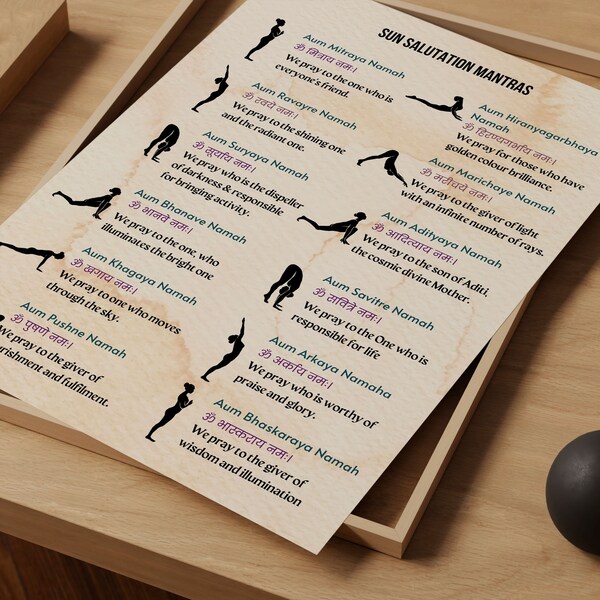 SUN SALUTATION MANTRAS
Aum Mitraya Namah
ॐ मित्राय नमः।
We pray to the one who is
everyone's friend.
Aum Ravayre Namah
ॐ रवये नमः।
We pray to the shining one
and the radiant one.
Aum Suryaya Namah
ॐ सूर्याय नमः।
We pray who is the dispeller
of darkness & responsible
for bringing activity.
Aum Bhanave Namah
ॐ भानवे नमः।
We pray to the one, who
illuminates the bright one
Aum Khagaya Namah
ॐ खगाय नमः।
We pray to one who moves
through the sky.
Aum Pushne Namah
ॐ पुषणे नमः।
We pray to the giver of
and fulfilment.
Aum Hiranyagarbhaya
Namah
ॐ हिरण्यगर्भाय नमः।
We pray for those who have
golden colour brilliance.
Aum Marichaye Namah
ॐ मरीचये नमः।
We pray to the giver of light
with an infinite number of rays.
Aum Adityaya Namah
ॐ आदित्याय नमः।
We pray to the son of Aditi,
the cosmic divine Mother.
Aum Savitre Namah
ॐ सवित्रे नमः।
We pray to the One who is
responsible for life
Aum Arkaya Namaha
ॐ अर्काय नमः।
We pray who is worthy of
praise and glory.
Aum Bhaskaraya Namah
ॐ भास्कराय नमः।
We pray to the giver of
wisdom and illumination